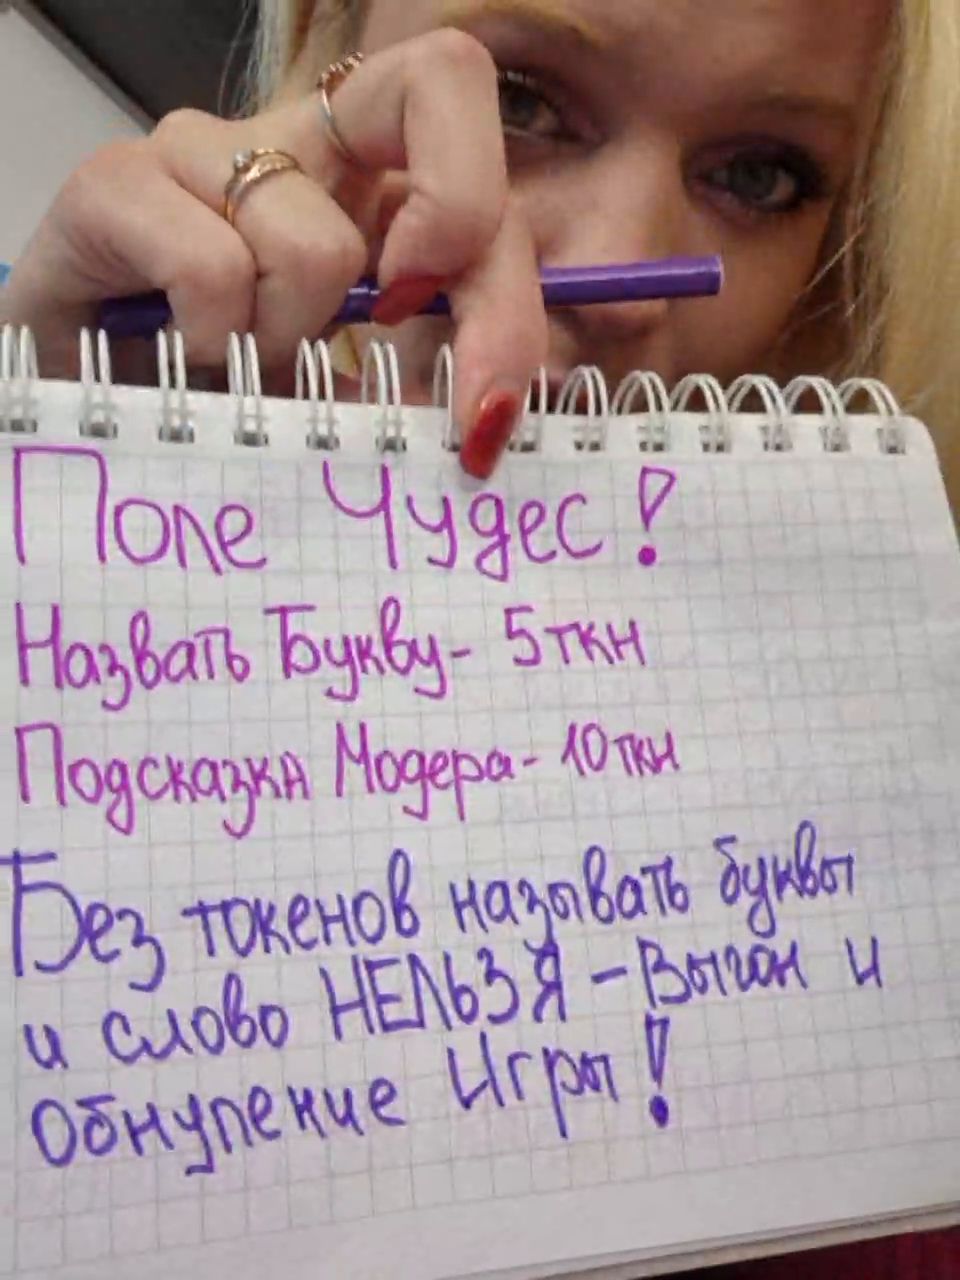 Поле Чудес!
Назвать Букву- 5ткн
Подсказка Модера- 10ткн
Без токенов называть буквы
и слово НЕЛЬЗЯ - Выгон и
обнуление Игры!